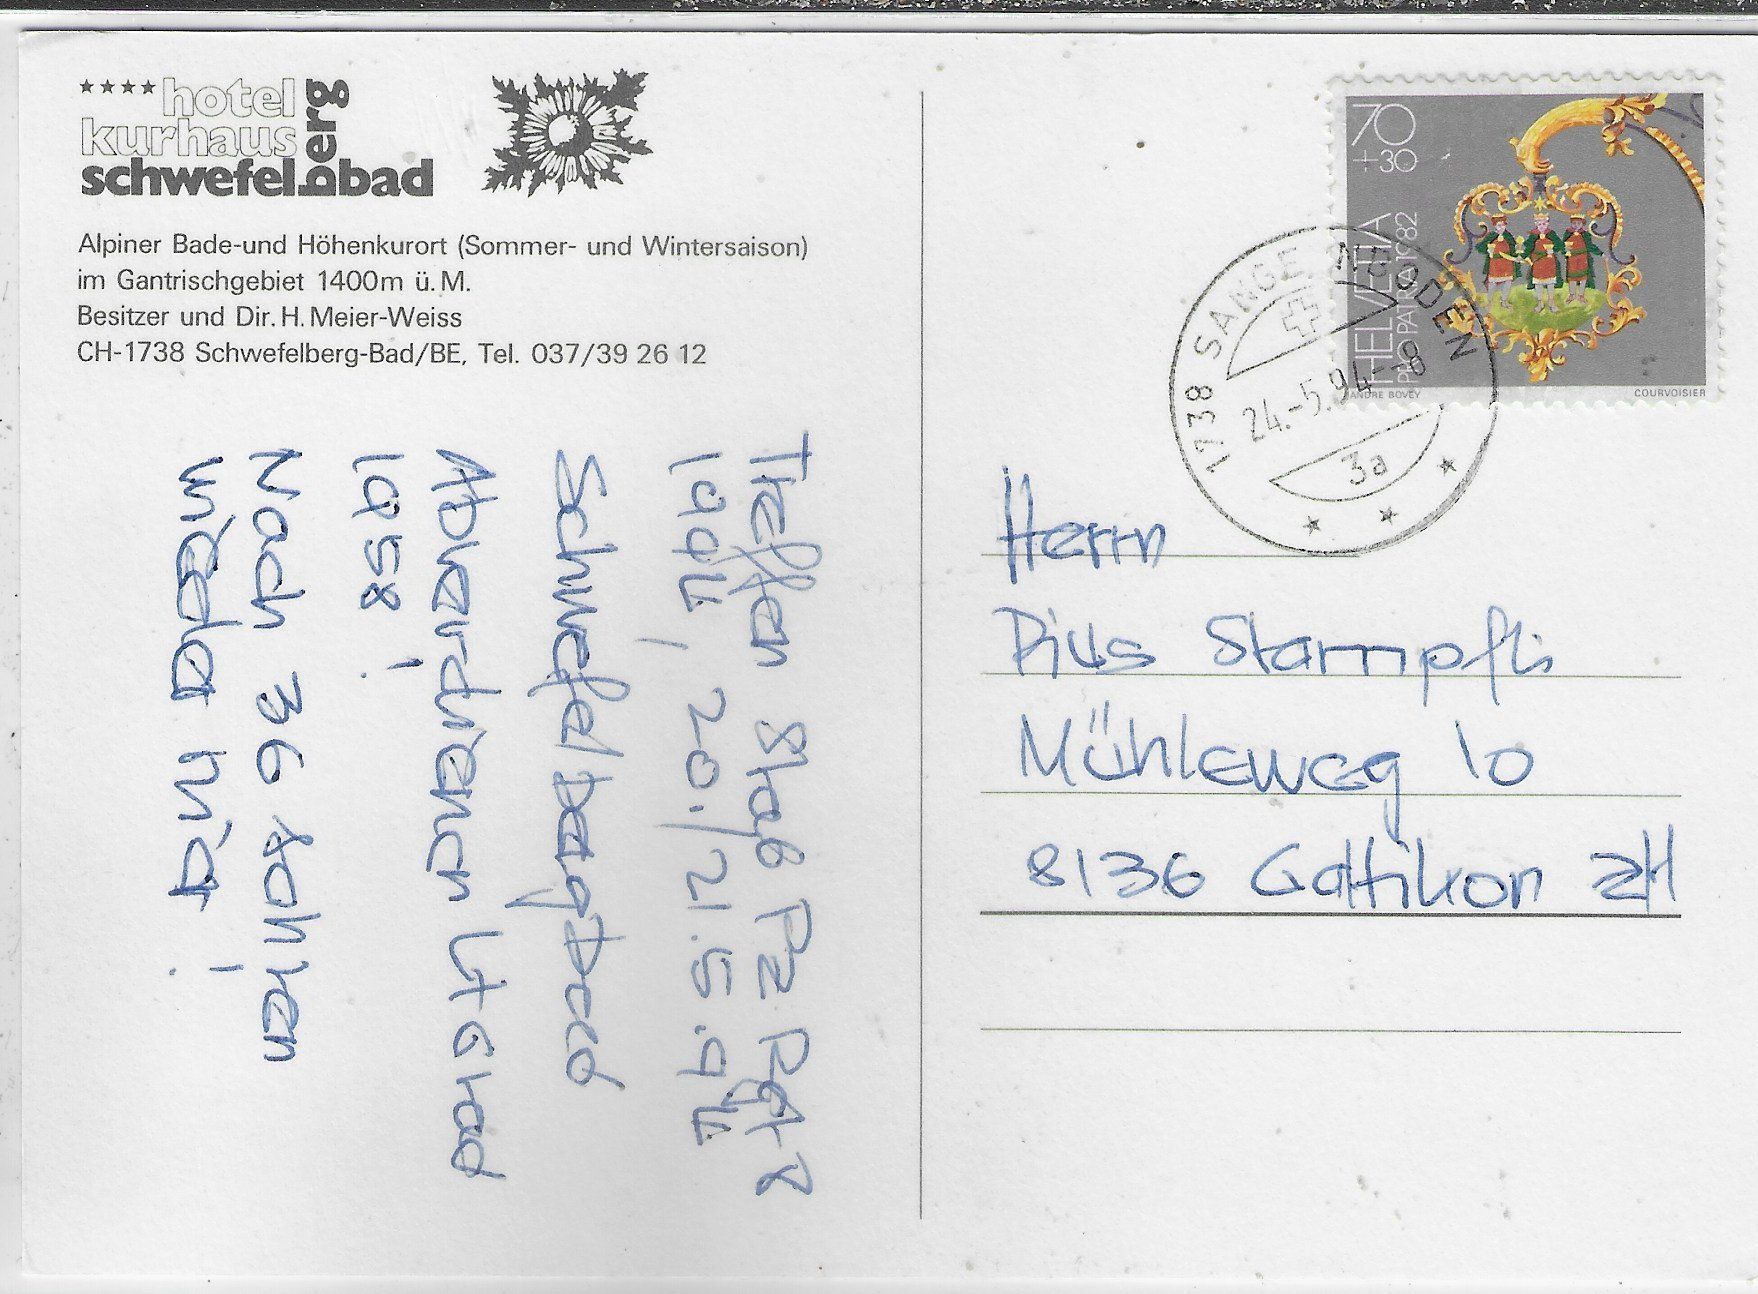 ★★★★ hotel
kurhaus
schwefelbergbad
Alpiner Bade-und Höhenkurort (Sommer- und Wintersaison)
im Gantrischgebiet 1400m ü. M.
Besitzer und Dir. H. Meier-Weiss
CH-1738 Schwefelberg-Bad/BE, Tel. 037/39 26 12
Treffen Stab Pz Rgt 8
1994, 20./21.5.94
Schwefelbergbad
Abverdienen Lt Grad
1958!
Nach 36 Jahren
wieder hier!
70
+30
HELVETIA
PRO PATRIA 1982
ANDRE BOVEY
COURVOISIER
1738 SANGERNBODEN
24.-5.94--8
3a
Herrn
Pius Stampfli
Mühleweg 10
8136 Gattikon ZH